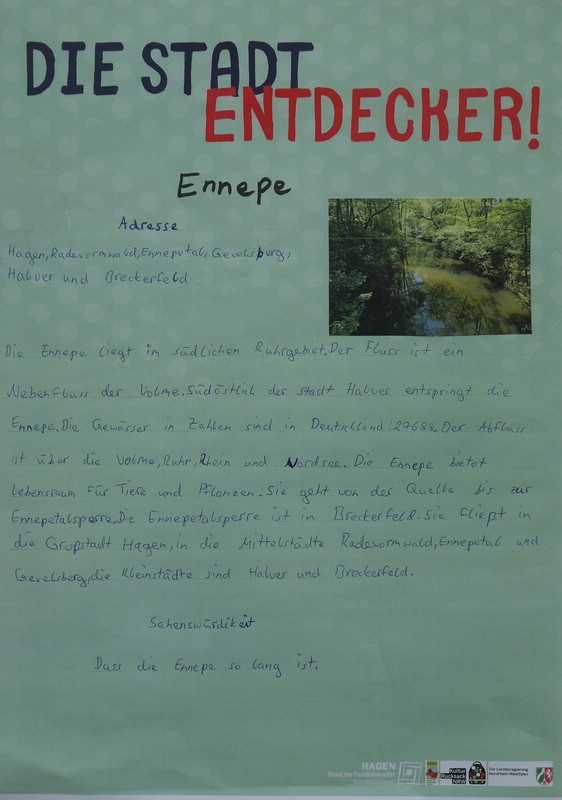 DIE STADT
ENTDECKER!
Ennepe
Adresse
Hagen,Radevormwald,Ennepetal,Gevelsberg,
Halver und Breckerfeld
Die Ennepe liegt im südlichen Ruhrgebiet.Der Fluss ist ein
Nebenfluss der Volme.Südöstlich der stadt Halver entspringt die
Ennepe.Die Gewässer in Zahlen sind in Deutschland:27688.Der Abfluss
ist über die Volme,Ruhr,Rhein und Nordsee.Die Ennepe bietet
Lebensraum für Tiere und Pflanzen.Sie geht von der Quelle bis zur
Ennepetalsperre.Die Ennepetalsperre ist in Breckerfeld.Sie fließt in
die Großstadt Hagen,in die Mittelstädte Radevormwald,Ennepetal und
Gevelsberg,die Kleinstädte sind Halver und Breckerfeld.
Sehenswürdikeit
Dass die Ennepe so lang ist.
HAGEN
Stadt der FernUniversität
Kultur
Rucksack
NRW
Die Landesregierung
Nordrhein-Westfalen